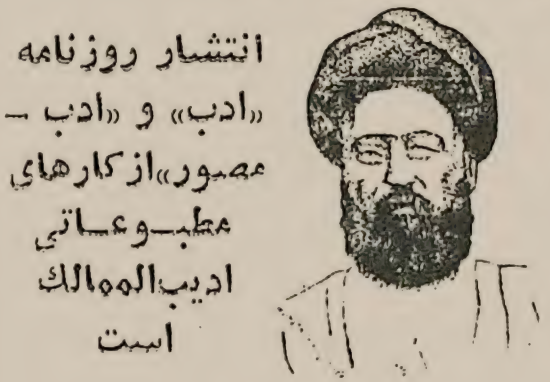 انتشار روزنامه
«ادب» و «ادب ـ
مصور» از کارهای
مطبـوعـاتی
ادیب‌الممالک
است